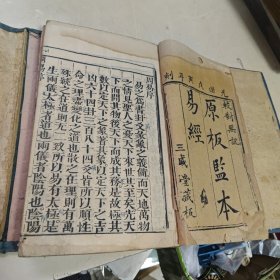 原板監本
易經
三盛堂藏板
周易序
易之為書卦爻彖象之義備而天地萬物
之情見聖人之憂天下來世其至矣先天
下而開其物後天下而成其務是故極其
數以定天下之象著其象以定天下之吉
凶六十四卦三百八十四爻皆所以順性
命之理盡變化之道也散之在理則有萬
殊統之在道則无二致所以易有太極是
生兩儀太極者道也兩儀者陰陽也陰陽